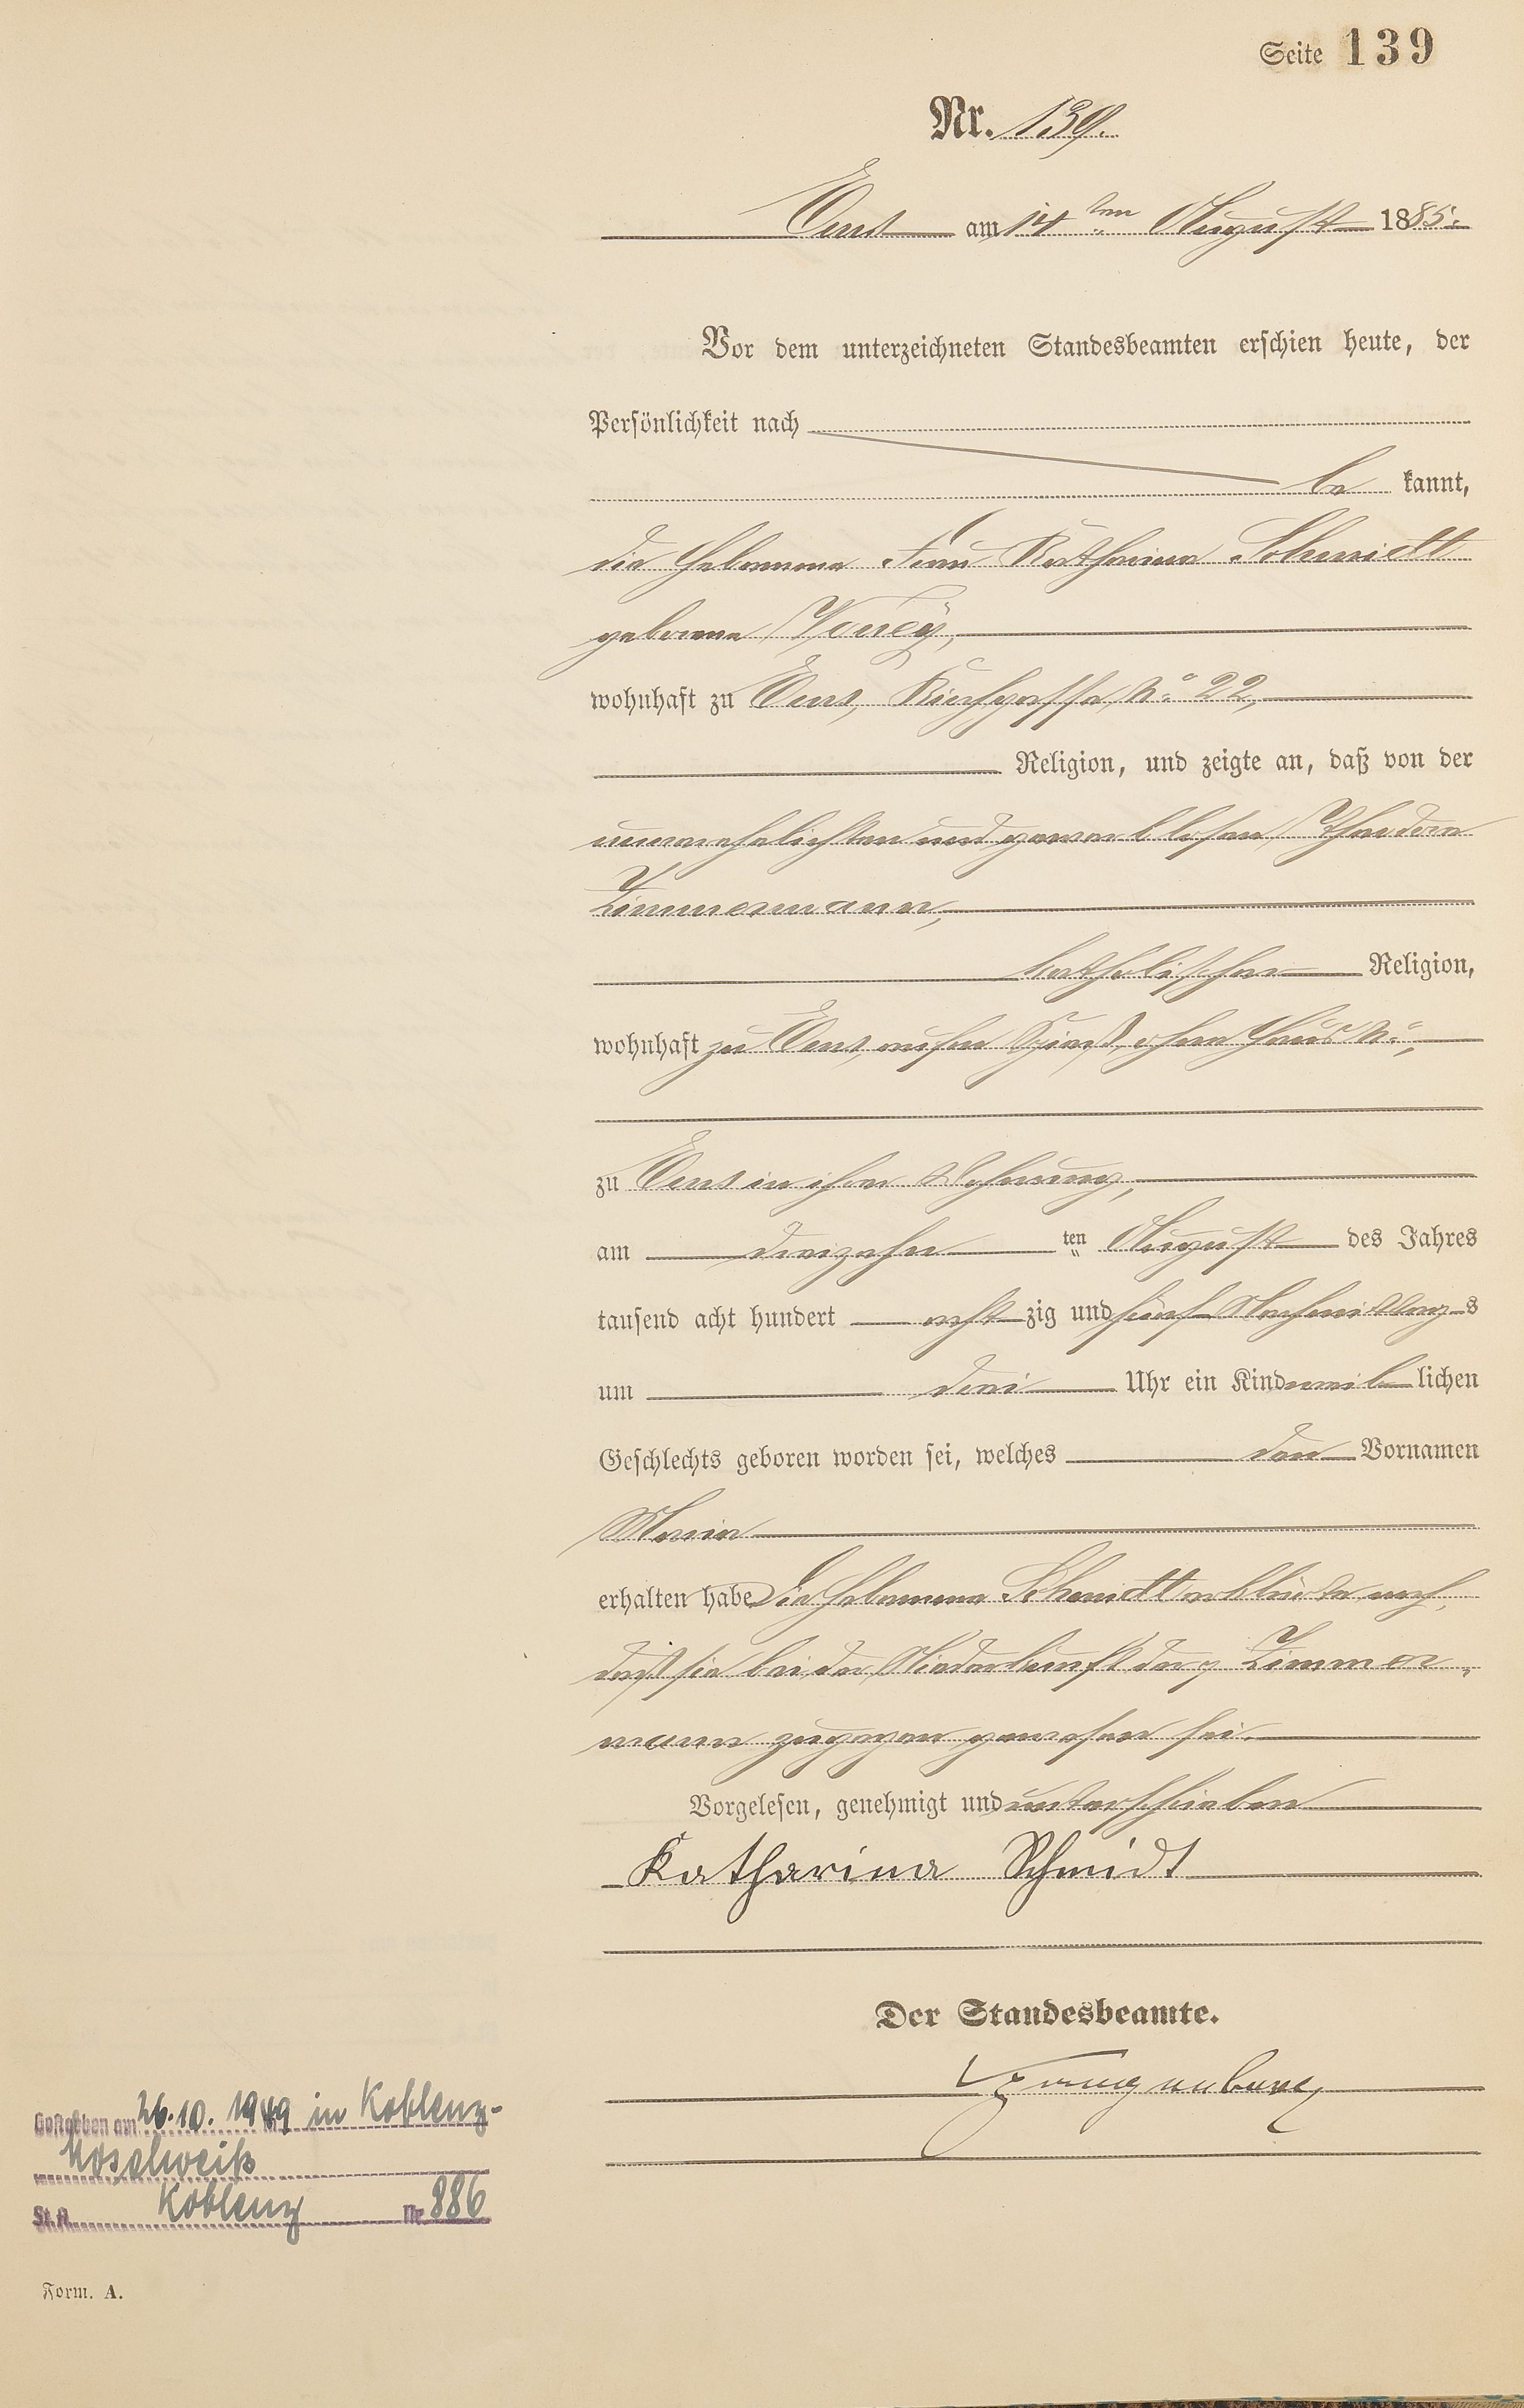 Seite 139
Nr. 139.
Ems am 14ten August 1885.
Vor dem unterzeichneten Standesbeamten erschien heute, der
Persönlichkeit nach
be kannt,
die Hebamme Frau Katharina Schmidt
geborene
wohnhaft zu Ems, Kirchgasse No 22,
Religion, und zeigte an, daß von der
unverehelichten und gewerblosen Theodora
Zimmermann,
katholischer Religion,
wohnhaft zu Ems, ohne Haus No,
zu Ems in ihrer Wohnung,
am dreizehn ten August des Jahres
tausend acht hundert acht zig und fünf Nachmittag s
um drei Uhr ein Kind weib lichen
Geschlechts geboren worden sei, welches den Vornamen
Maria
erhalten habe Die Hebamme Schmidt erklärte noch,
daß sie bei der Niederkunft der p Zimmer-
mann zugegen gewesen sei.
Vorgelesen, genehmigt und unterschrieben
Katharina Schmidt
Der Standesbeamte.
Gestorben am 26.10.1949 in Koblenz-
Moselweiß
St.A. Koblenz Nr. 886
Form. A.